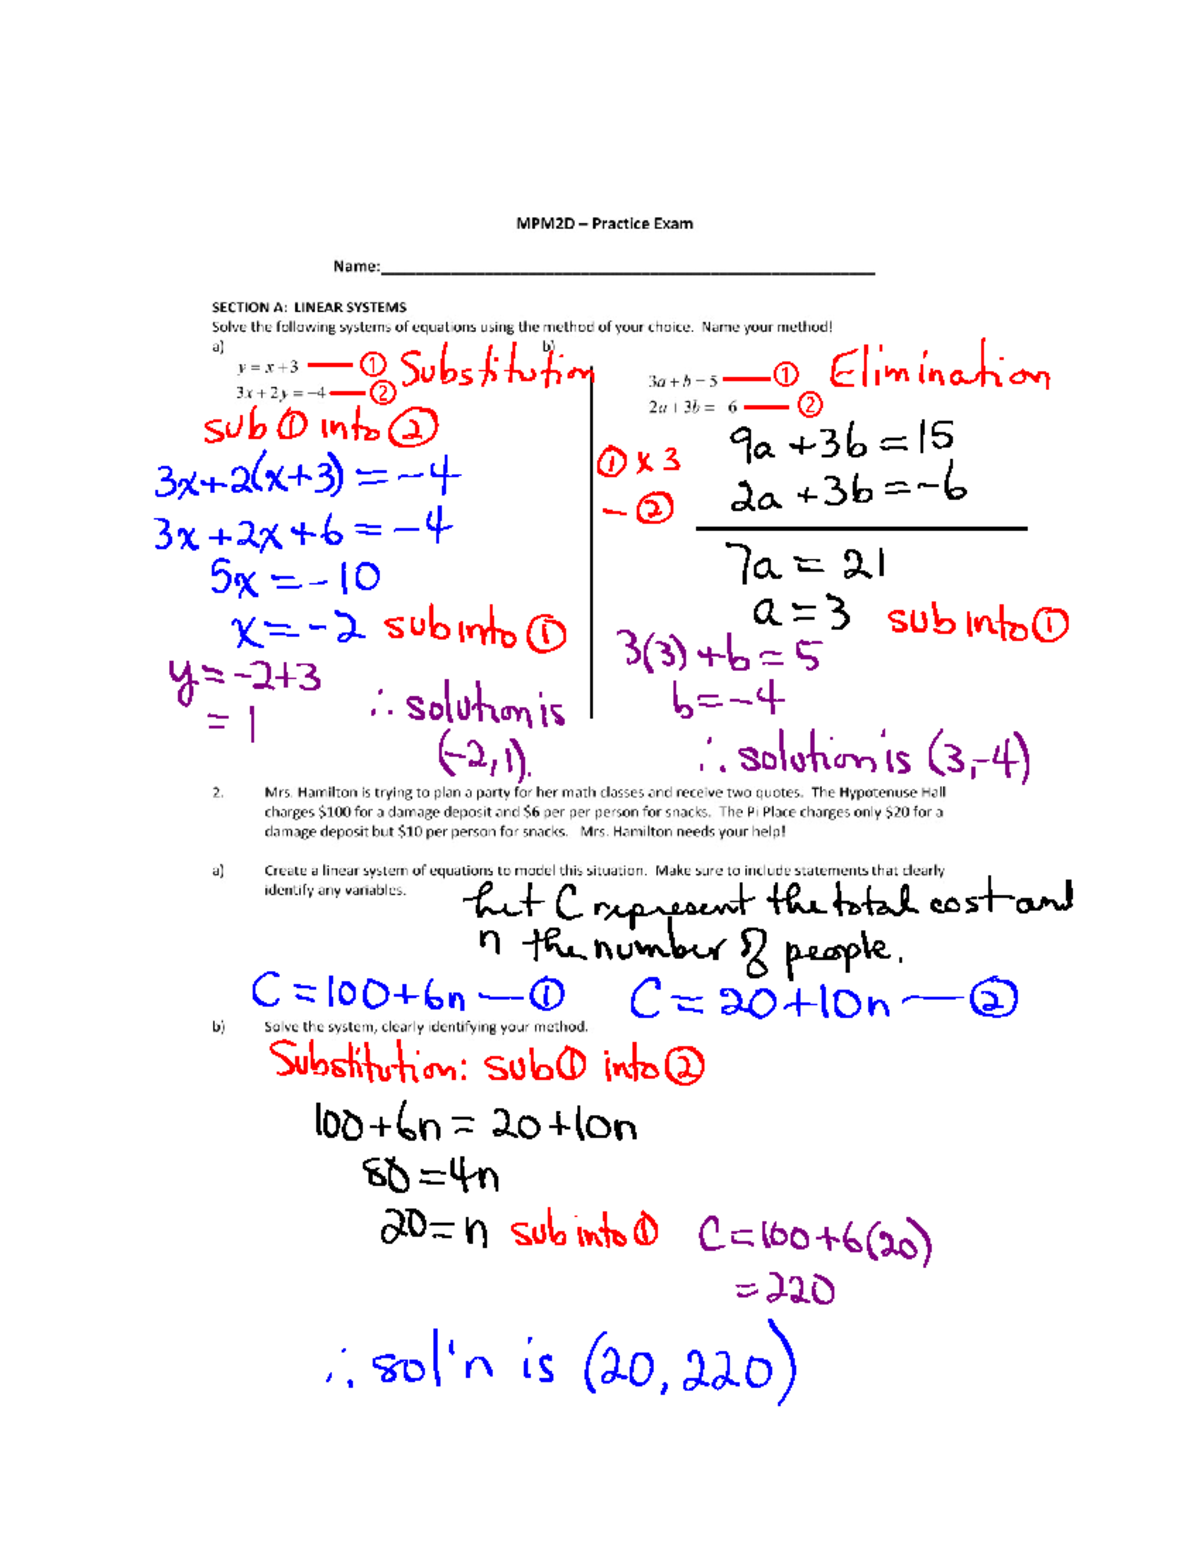 MPM2D – Practice Exam
Name:
SECTION A: LINEAR SYSTEMS
Solve the following systems of equations using the method of your choice. Name your method!
a)
y = x + 3 — ① Substitution
3x + 2y = −4 — ②
sub ① into ②
3x+2(x+3) = −4
3x+2x+6 = −4
5x = −10
x = −2 sub into ①
y = −2+3
= 1
∴ solution is
(−2,1).
b)
3a + b = 5 — ① Elimination
2a + 3b = 6 — ②
① x 3
− ②
9a +3b = 15
2a +3b = −6
7a = 21
a = 3 sub into ①
3(3) +b = 5
b = −4
∴ solution is (3,−4)
2. Mrs. Hamilton is trying to plan a party for her math classes and receive two quotes. The Hypotenuse Hall
charges $100 for a damage deposit and $6 per per person for snacks. The Pi Place charges only $20 for a
damage deposit but $10 per person for snacks. Mrs. Hamilton needs your help!
a) Create a linear system of equations to model this situation. Make sure to include statements that clearly
identify any variables.
Let C represent the total cost and
n the number of people.
C = 100+6n — ① C = 20+10n — ②
b) Solve the system, clearly identifying your method.
Substitution: sub ① into ②
100+6n = 20+10n
80 = 4n
20 = n sub into ① C = 100+6(20)
= 220
∴ sol'n is (20, 220)